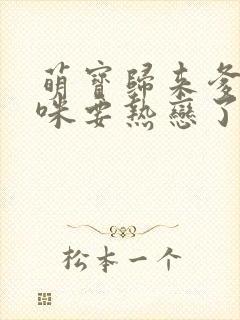 萌寶歸來爹
咪要熱戀了
松本一个